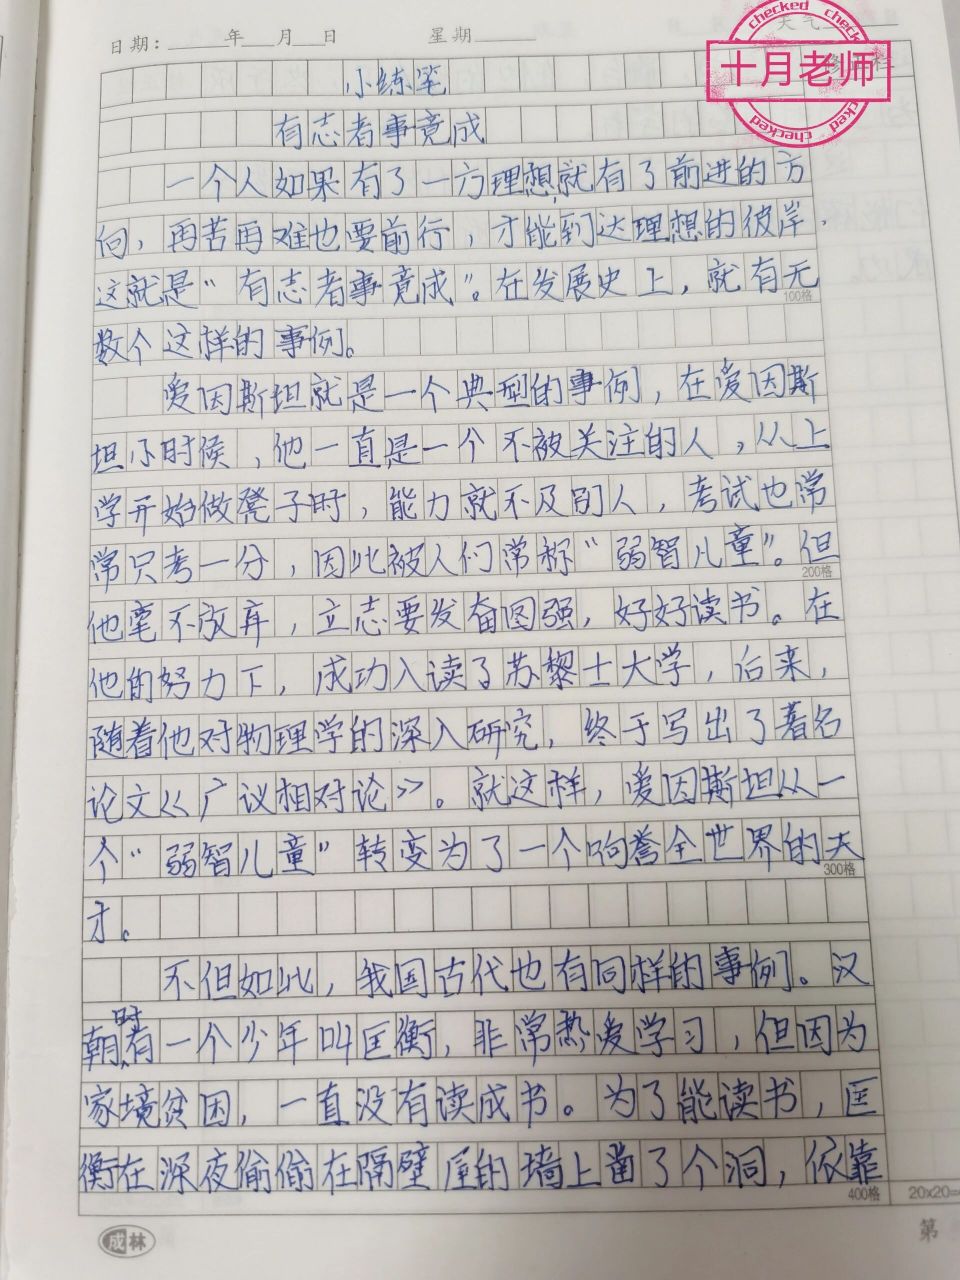 日期：____年__月__日 星期____ 天气
checked
十月老师
checked
checked
小练笔
有志者事竟成
一个人如果有了一方理想,就有了前进的方
向，再苦再难也要前行，才能到达理想的彼岸，
这就是“有志者事竟成”。在发展史上，就有无
100格
数个这样的事例。
爱因斯坦就是一个典型的事例，在爱因斯
坦小时候，他一直是一个不被关注的人，从上
学开始做凳子时，能力就不及别人，考试也常
常只考一分，因此被人们常称“弱智儿童”。但
200格
他毫不放弃，立志要发奋图强，好好读书。在
他的努力下，成功入读了苏黎士大学，后来，
随着他对物理学的深入研究，终于写出了著名
论文《广议相对论》。就这样，爱因斯坦从一
个“弱智儿童”转变为了一个响誉全世界的天
300格
才。
不但如此，我国古代也有同样的事例。汉
朝时有一个少年叫匡衡，非常热爱学习，但因为
家境贫困，一直没有读成书。为了能读书，匡
衡在深夜偷偷在隔壁屋的墙上凿了个洞，依靠
400格
20x20=
成林
第